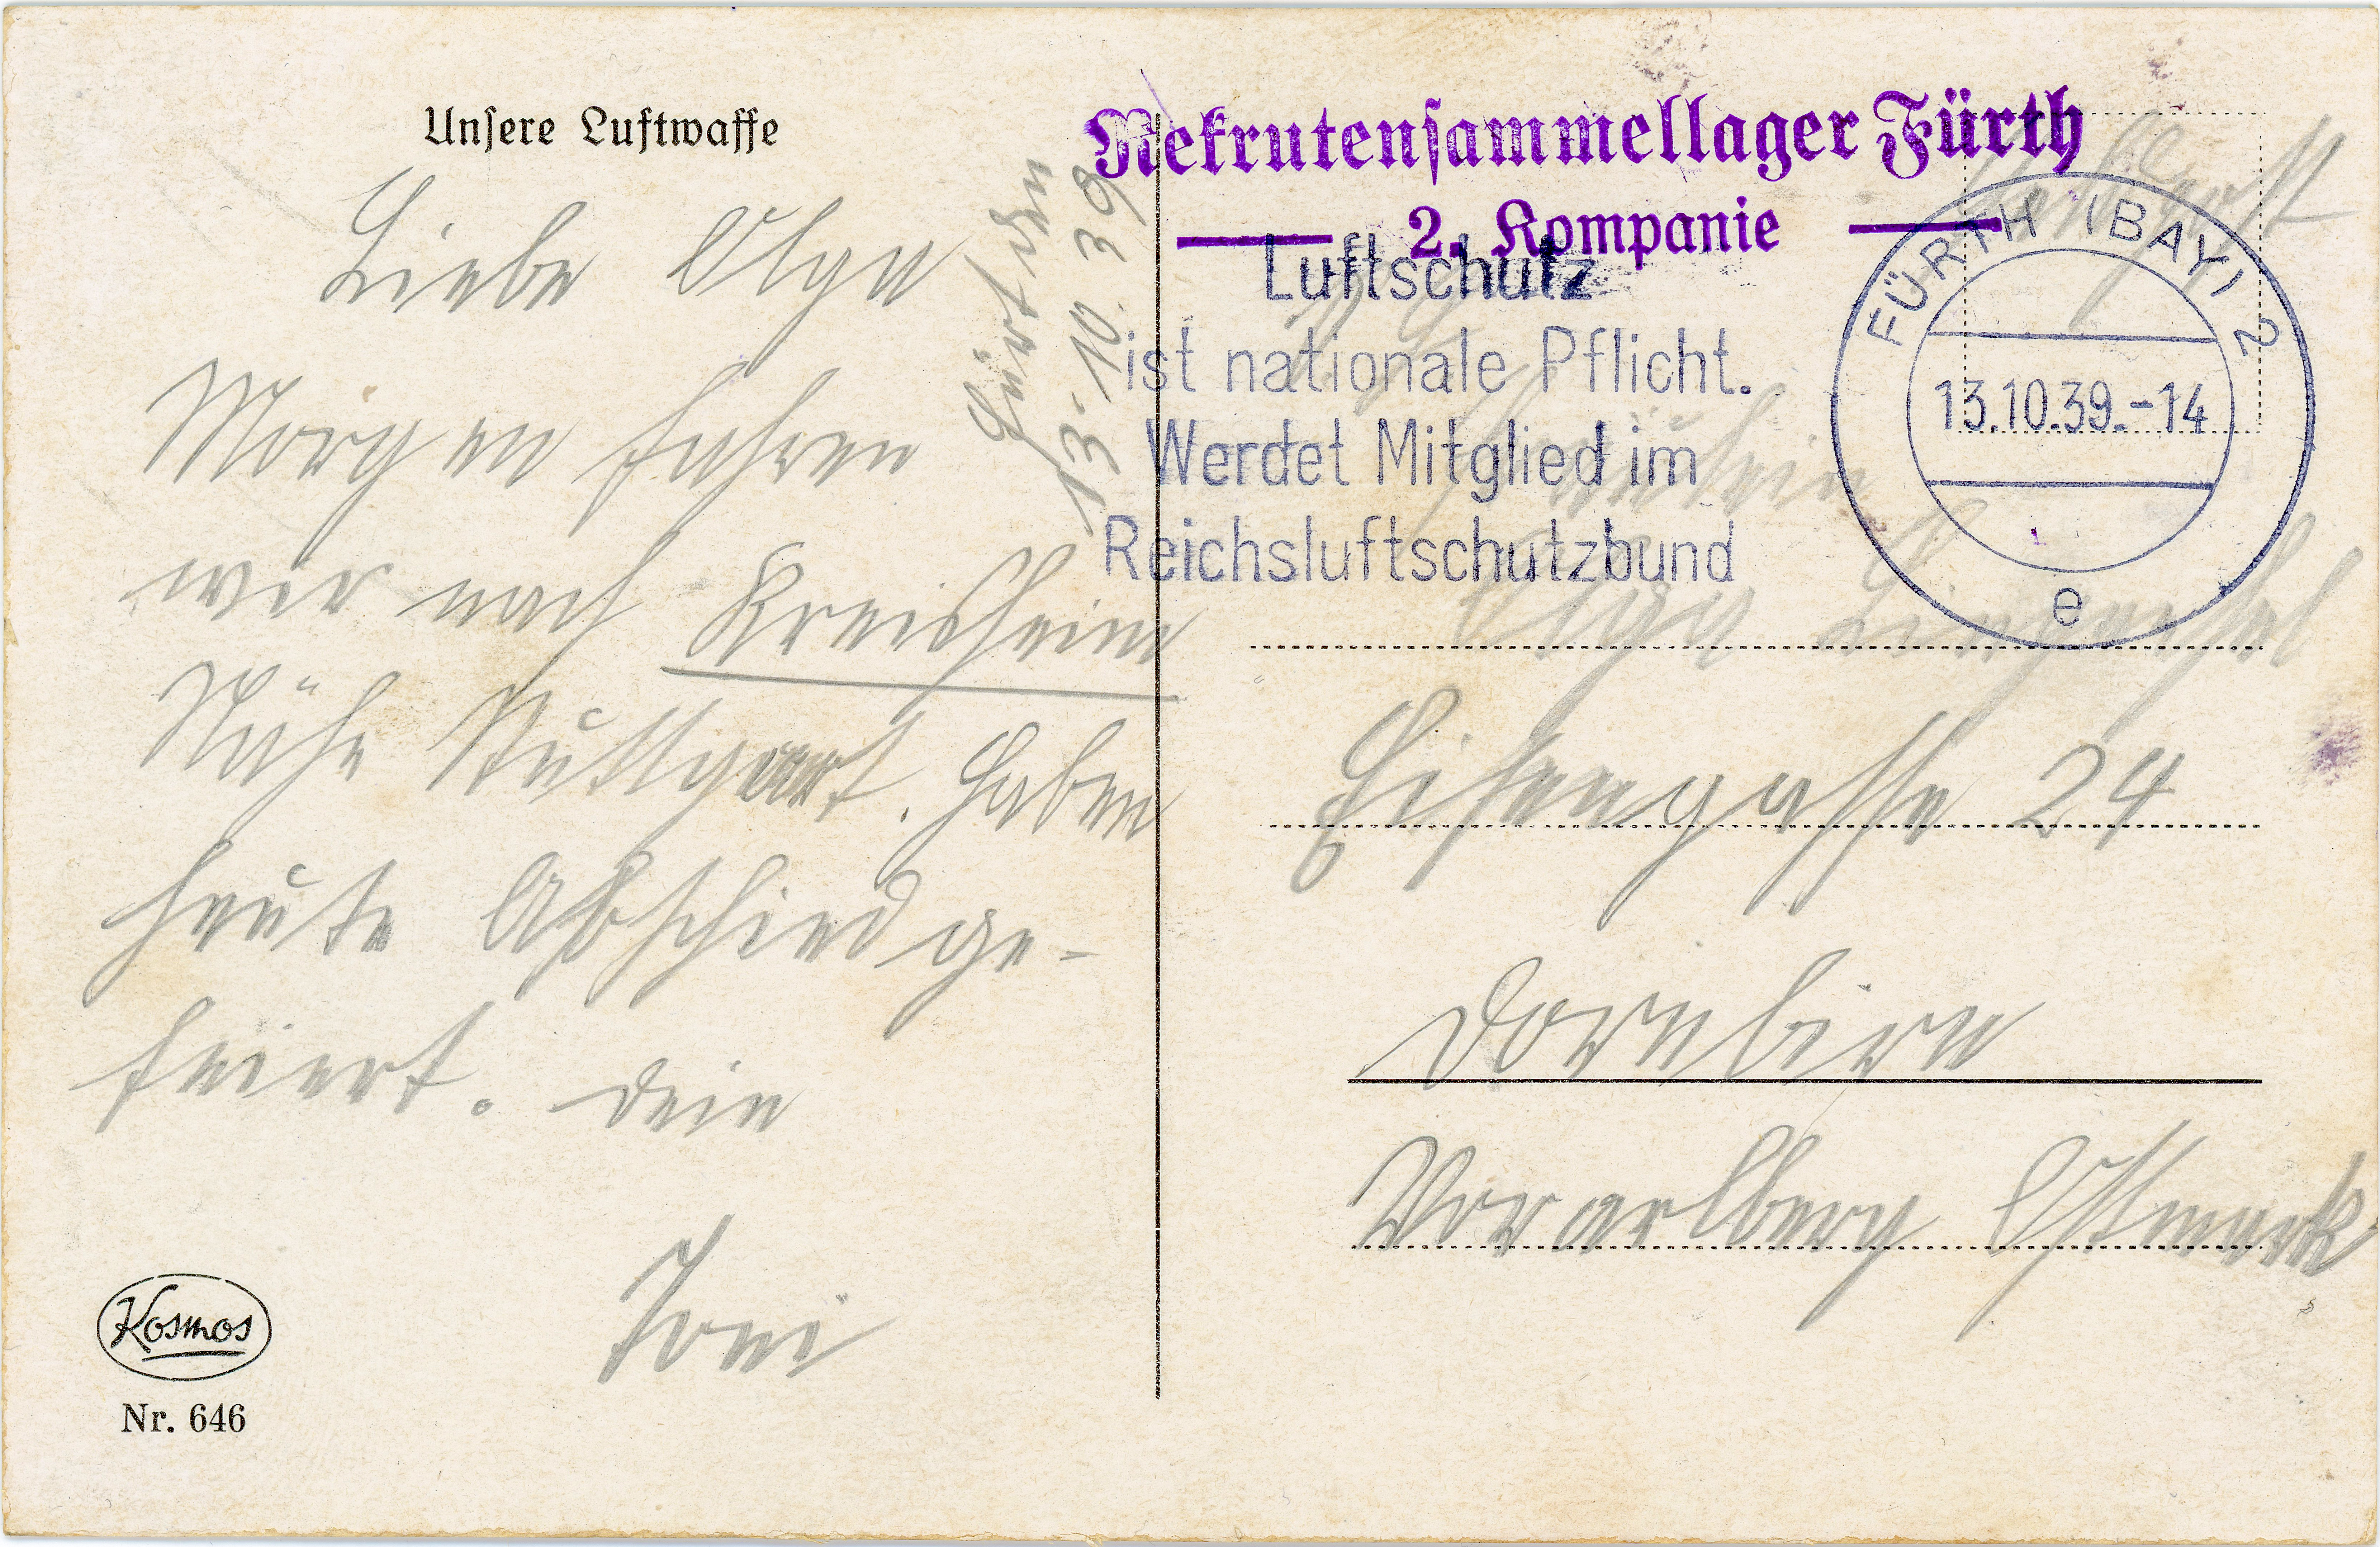 Unsere Luftwaffe
Fürt den
13.10.39
Liebe Olga
Morgen fahren
wir nach Kreilsheim
Nähe Stuttgart. Haben
heute Abschied ge-
feiert. Dein
Toni
Kosmos
Nr. 646
Rekrutensammellager Fürth
2. Kompanie
Luftschutz
ist nationale Pflicht.
Werdet Mitglied im
Reichsluftschutzbund
FÜRTH (BAY) 2
13.10.39.-14
e
Fräulein
Olga
Eisengasse 24
Dornbirn
Vorarlberg Ostmark